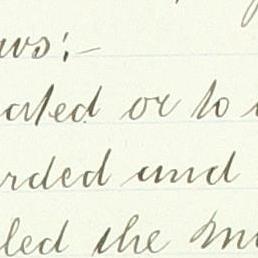 ws:-
ated or to
rded and
led the